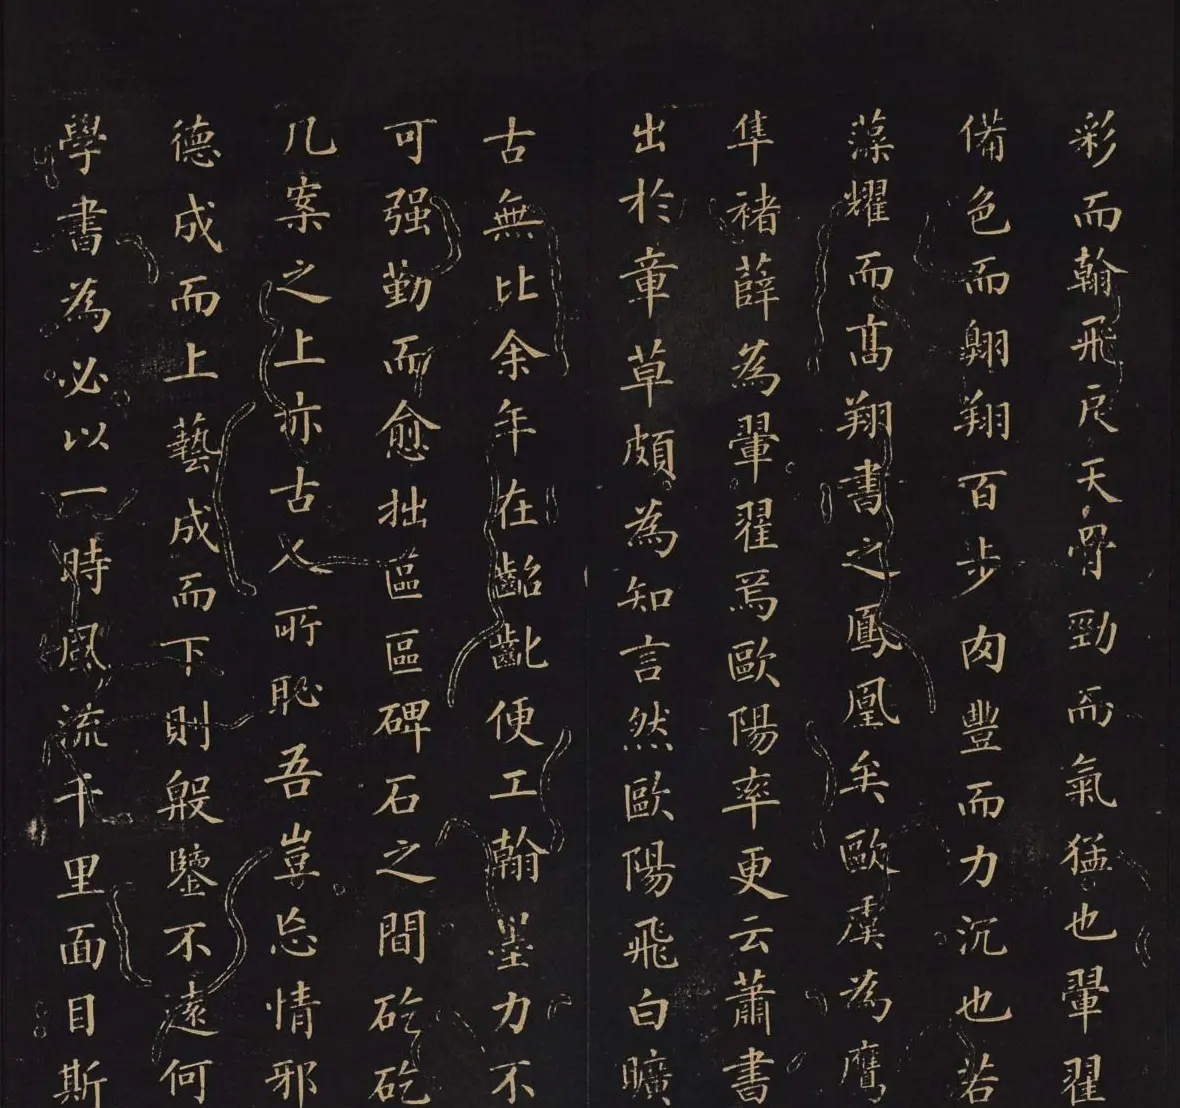 彩而翰飛戾天骨勁而氣猛也翬翟
備色而翱翔百步肉豐而力沉也若
藻耀而高翔書之鳳凰矣歐虞為鷹
隼褚薛為翬翟焉歐陽率更云蕭書
出於章草頗為知言然歐陽飛白曠
古無比余年在齠齔便工翰墨力不
可强勤而愈拙區區碑石之間矻矻
几案之上亦古人所恥吾豈忘情邪
德成而上藝成而下則殷鑒不遠何
學書為必以一時風流千里面目斯